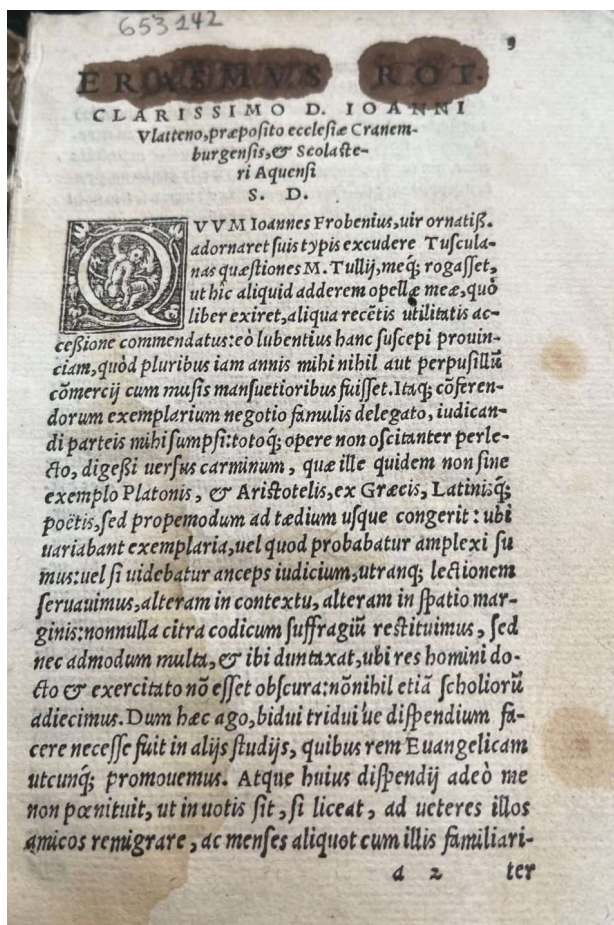 653142
9
ERASMVS ROT.
CLARISSIMO D. IOANNI
Vlatteno, præposito ecclesiæ Cranem-
burgensis, & Scolaste-
ri Aquensi
S. D.
QVVM Ioannes Frobenius, uir ornatiß.
adornaret suis typis excudere Tuscula-
nas quæstiones M. Tullij, meq́; rogasset,
ut hîc aliquid adderem opellæ meæ, quò
liber exiret, aliqua recẽtis utilitatis ac-
ceßione commendatus: eò lubentius hanc suscepi prouin-
ciam, quòd pluribus iam annis mihi nihil aut perpusillũ
cõmercij cum musis mansuetioribus fuisset. Itaq; cõferen-
dorum exemplarium negotio famulis delegato, iudican-
di parteis mihi sumpsi: totoq́; opere non oscitanter perle-
cto, digeßi uersus carminum, quæ ille quidem non sine
exemplo Platonis, & Aristotelis, ex Græcis, Latinisq́;
poëtis, sed propemodum ad tædium usque congerit: ubi
uariabant exemplaria, uel quod probabatur amplexi su
mus: uel si uidebatur anceps iudicium, utranq; lectionem
seruauimus, alteram in contextu, alteram in spatio mar-
ginis: nonnulla citra codicum suffragiũ restituimus, sed
nec admodum multa, & ibi duntaxat, ubi res homini do-
cto & exercitato nõ esset obscura: nõnihil etiã scholiorũ
adiecimus. Dum hæc ago, bidui tridui'ue dispendium fa-
cere necesse fuit in alijs studijs, quibus rem Euangelicam
utcunq́; promouemus. Atque huius dispendij adeò me
non pœnituit, ut in uotis sit, si liceat, ad ueteres illos
amicos remigrare, ac menses aliquot cum illis familiari-
a 2 ter